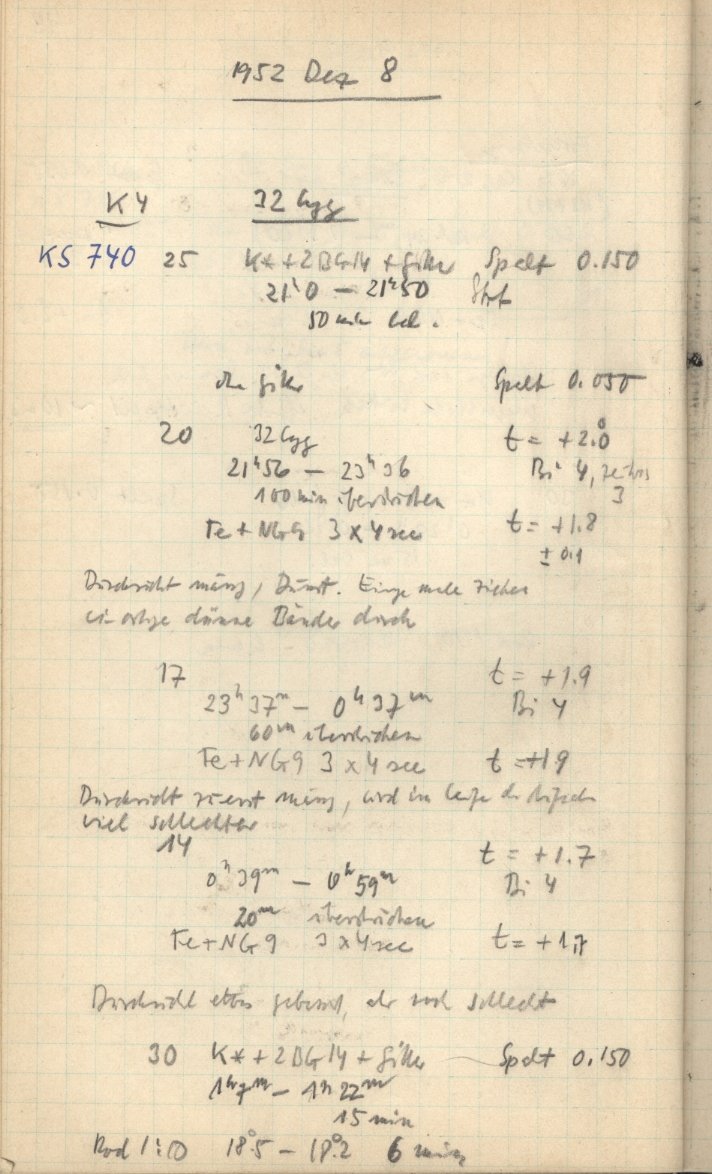 1952 Dez 8
K4 32 Cyg
KS 740 25 K* + 2BG14 + Gitter Spalt 0.150
21ʰ0 – 21ʰ50
50 min bel.
ohne Gitter Spalt 0.050
20 32 Cyg t = +2.0
21ʰ56 – 23ʰ36 Bi 4,
3
100 min überstrichen
Fe + NG9 3 x 4 sec t = +1.8
± 0.1
Durchsicht mässig, Dunst. Einige male ziehen
dünne Bänder durch
17 t = +1.9
23ʰ37ᵐ – 0ʰ37ᵐ Bi 4
60ᵐ überstrichen
Fe + NG9 3 x 4 sec t = +1.9
Durchsicht zuerst mässig, wird im Laufe der
viel schlechter
14 t = +1.7
0ʰ39ᵐ – 0ʰ59ᵐ Bi 4
20ᵐ überstrichen
Fe + NG9 3 x 4 sec t = +1.7
Durchsicht etwas gebessert, aber noch schlecht
30 K* + 2BG14 + Gitter – Spalt 0.150
1ʰ7ᵐ – 1ʰ22ᵐ
15 min
1:10 18°5 – 18°2 6 min